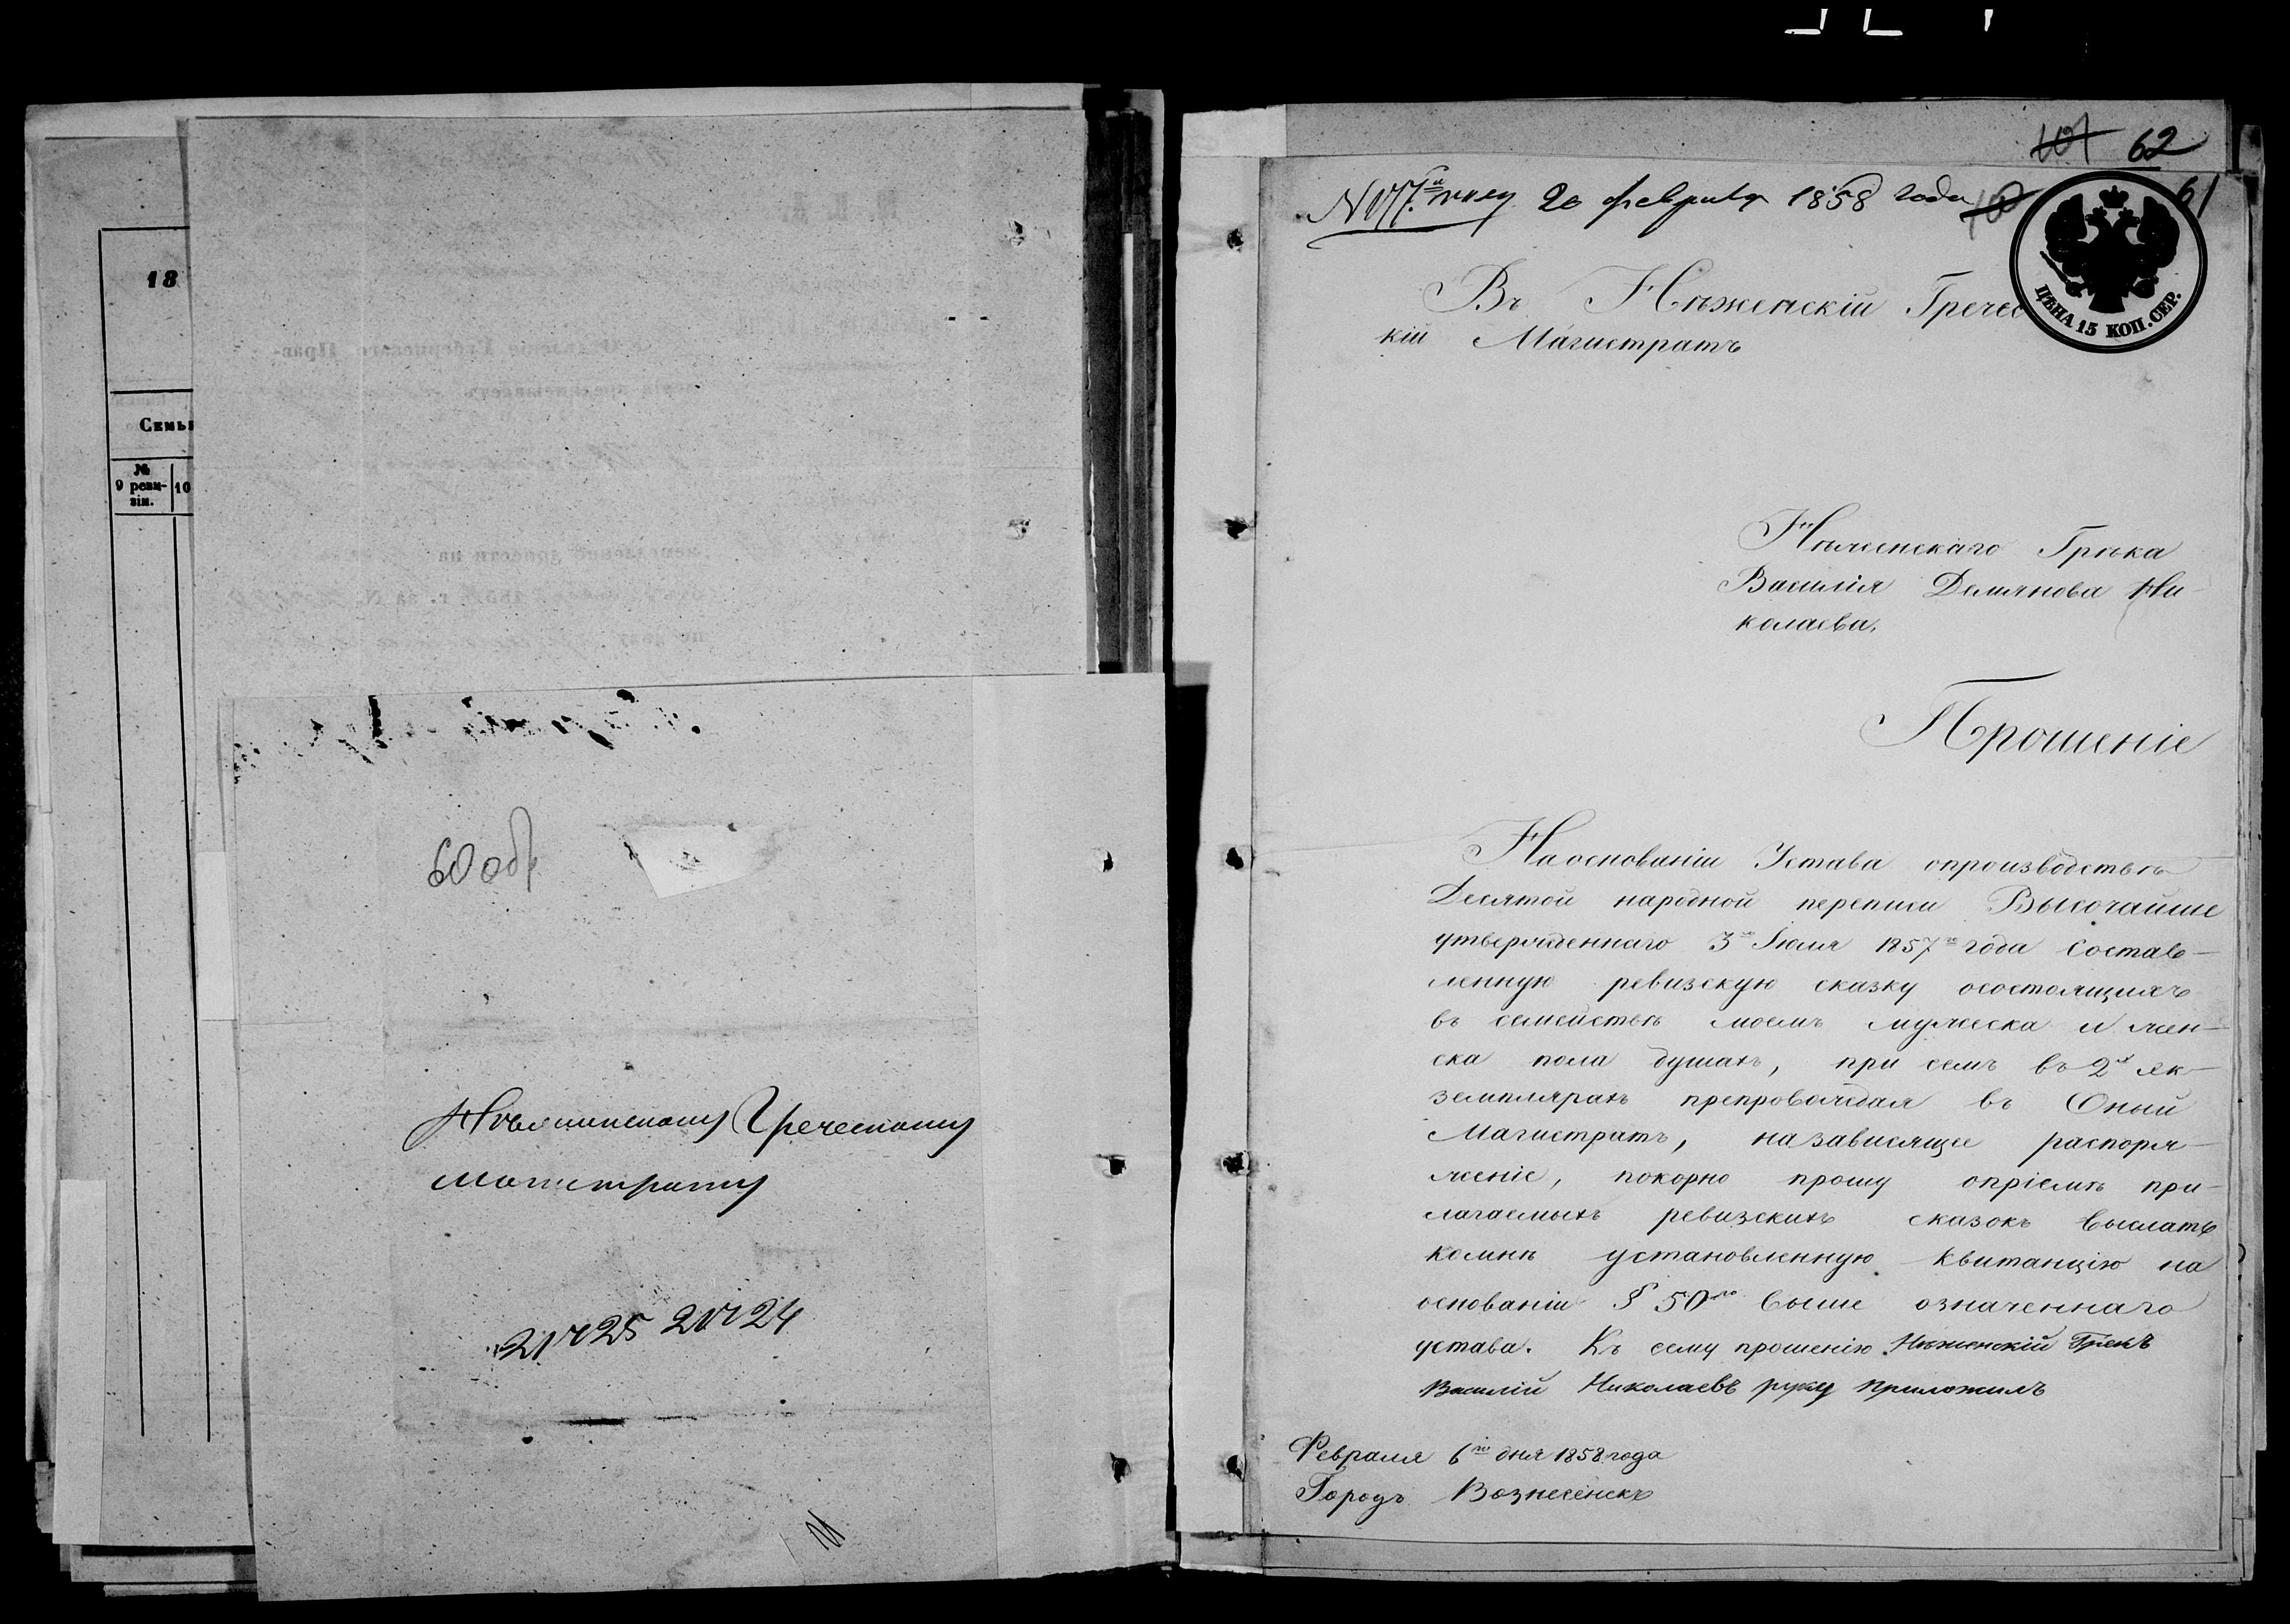 18
Семьи
№
9 реви-
зіи.
10
60 об
Нѣжинскому Греческому
Магистрату
62
61
20 февраля 1858 года
ЦѢНА 15 КОП. СЕР.
Въ Нѣженскій Гречес
кій Магистратъ
Нѣженскаго Грѣка
Василія Демянова Ни-
колаева.
Прошеніе
На основаніи Устава опроизводствѣ
Десятой народной переписи Высочайше
утвержденнаго 3го Іюля 1857го года состав-
ленную ревизскую сказку осостоящихъ
въ семействѣ моемъ мужеска и жен-
ска пола душахъ, при семъ въ 2х эк-
земплярахъ препровождая въ Оный
Магистратъ, назависящее распоря-
женіе, покорно прошу опріемѣ при-
лагаемыхъ ревизскихъ сказокъ выслать
комнѣ установленную квитанцію на
основаніи § 50го выше означеннаго
устава. Къ сему прошенію Нѣженскій Грекъ
Василій Николаевъ руку приложилъ
Февраля 6го дня 1858 года
Городъ Вознесенскъ